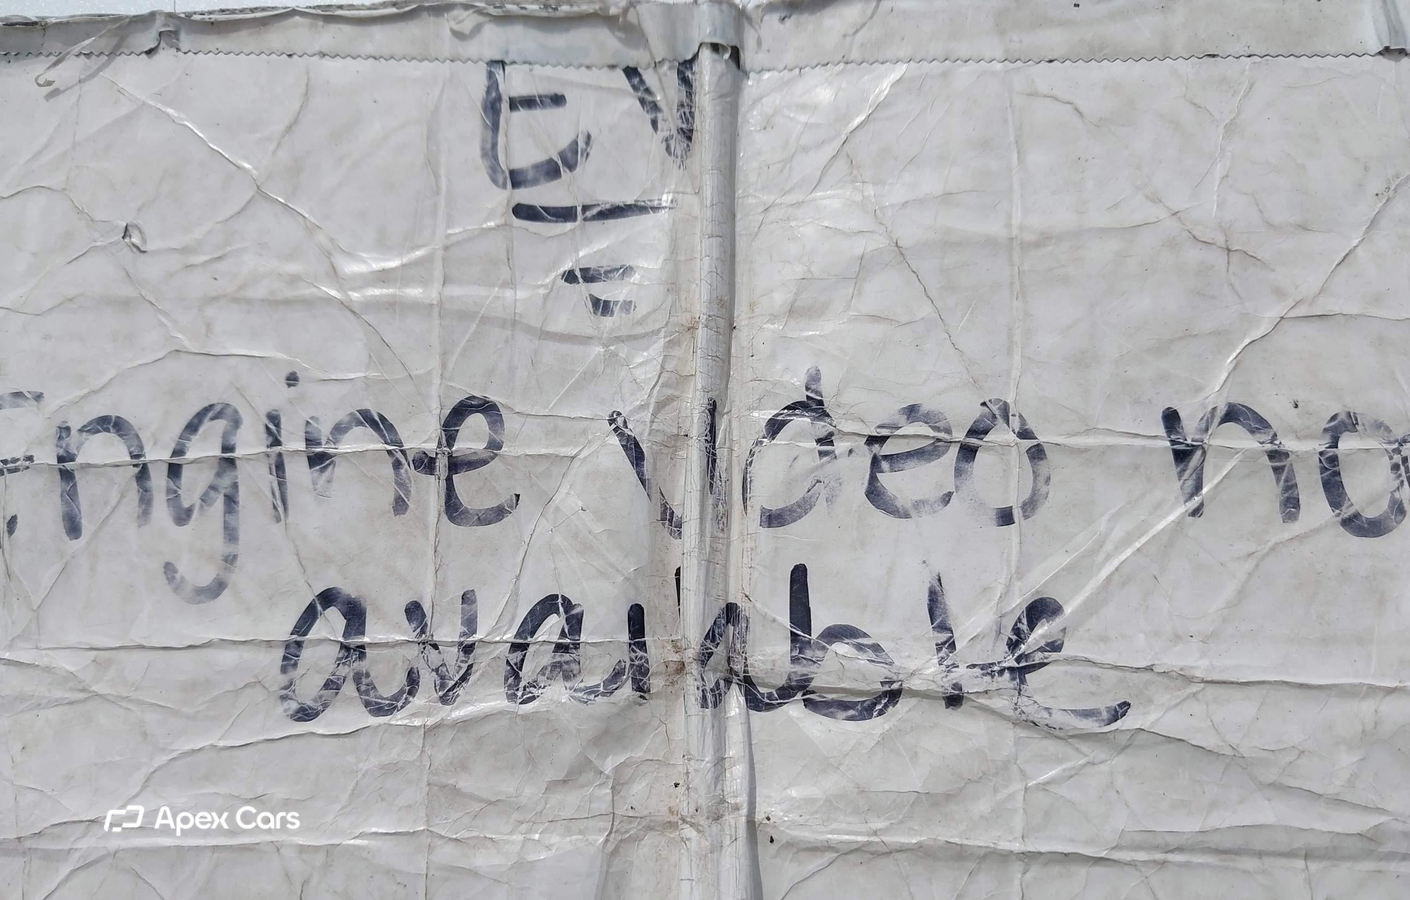 EV
Engine video no
available
Apex Cars